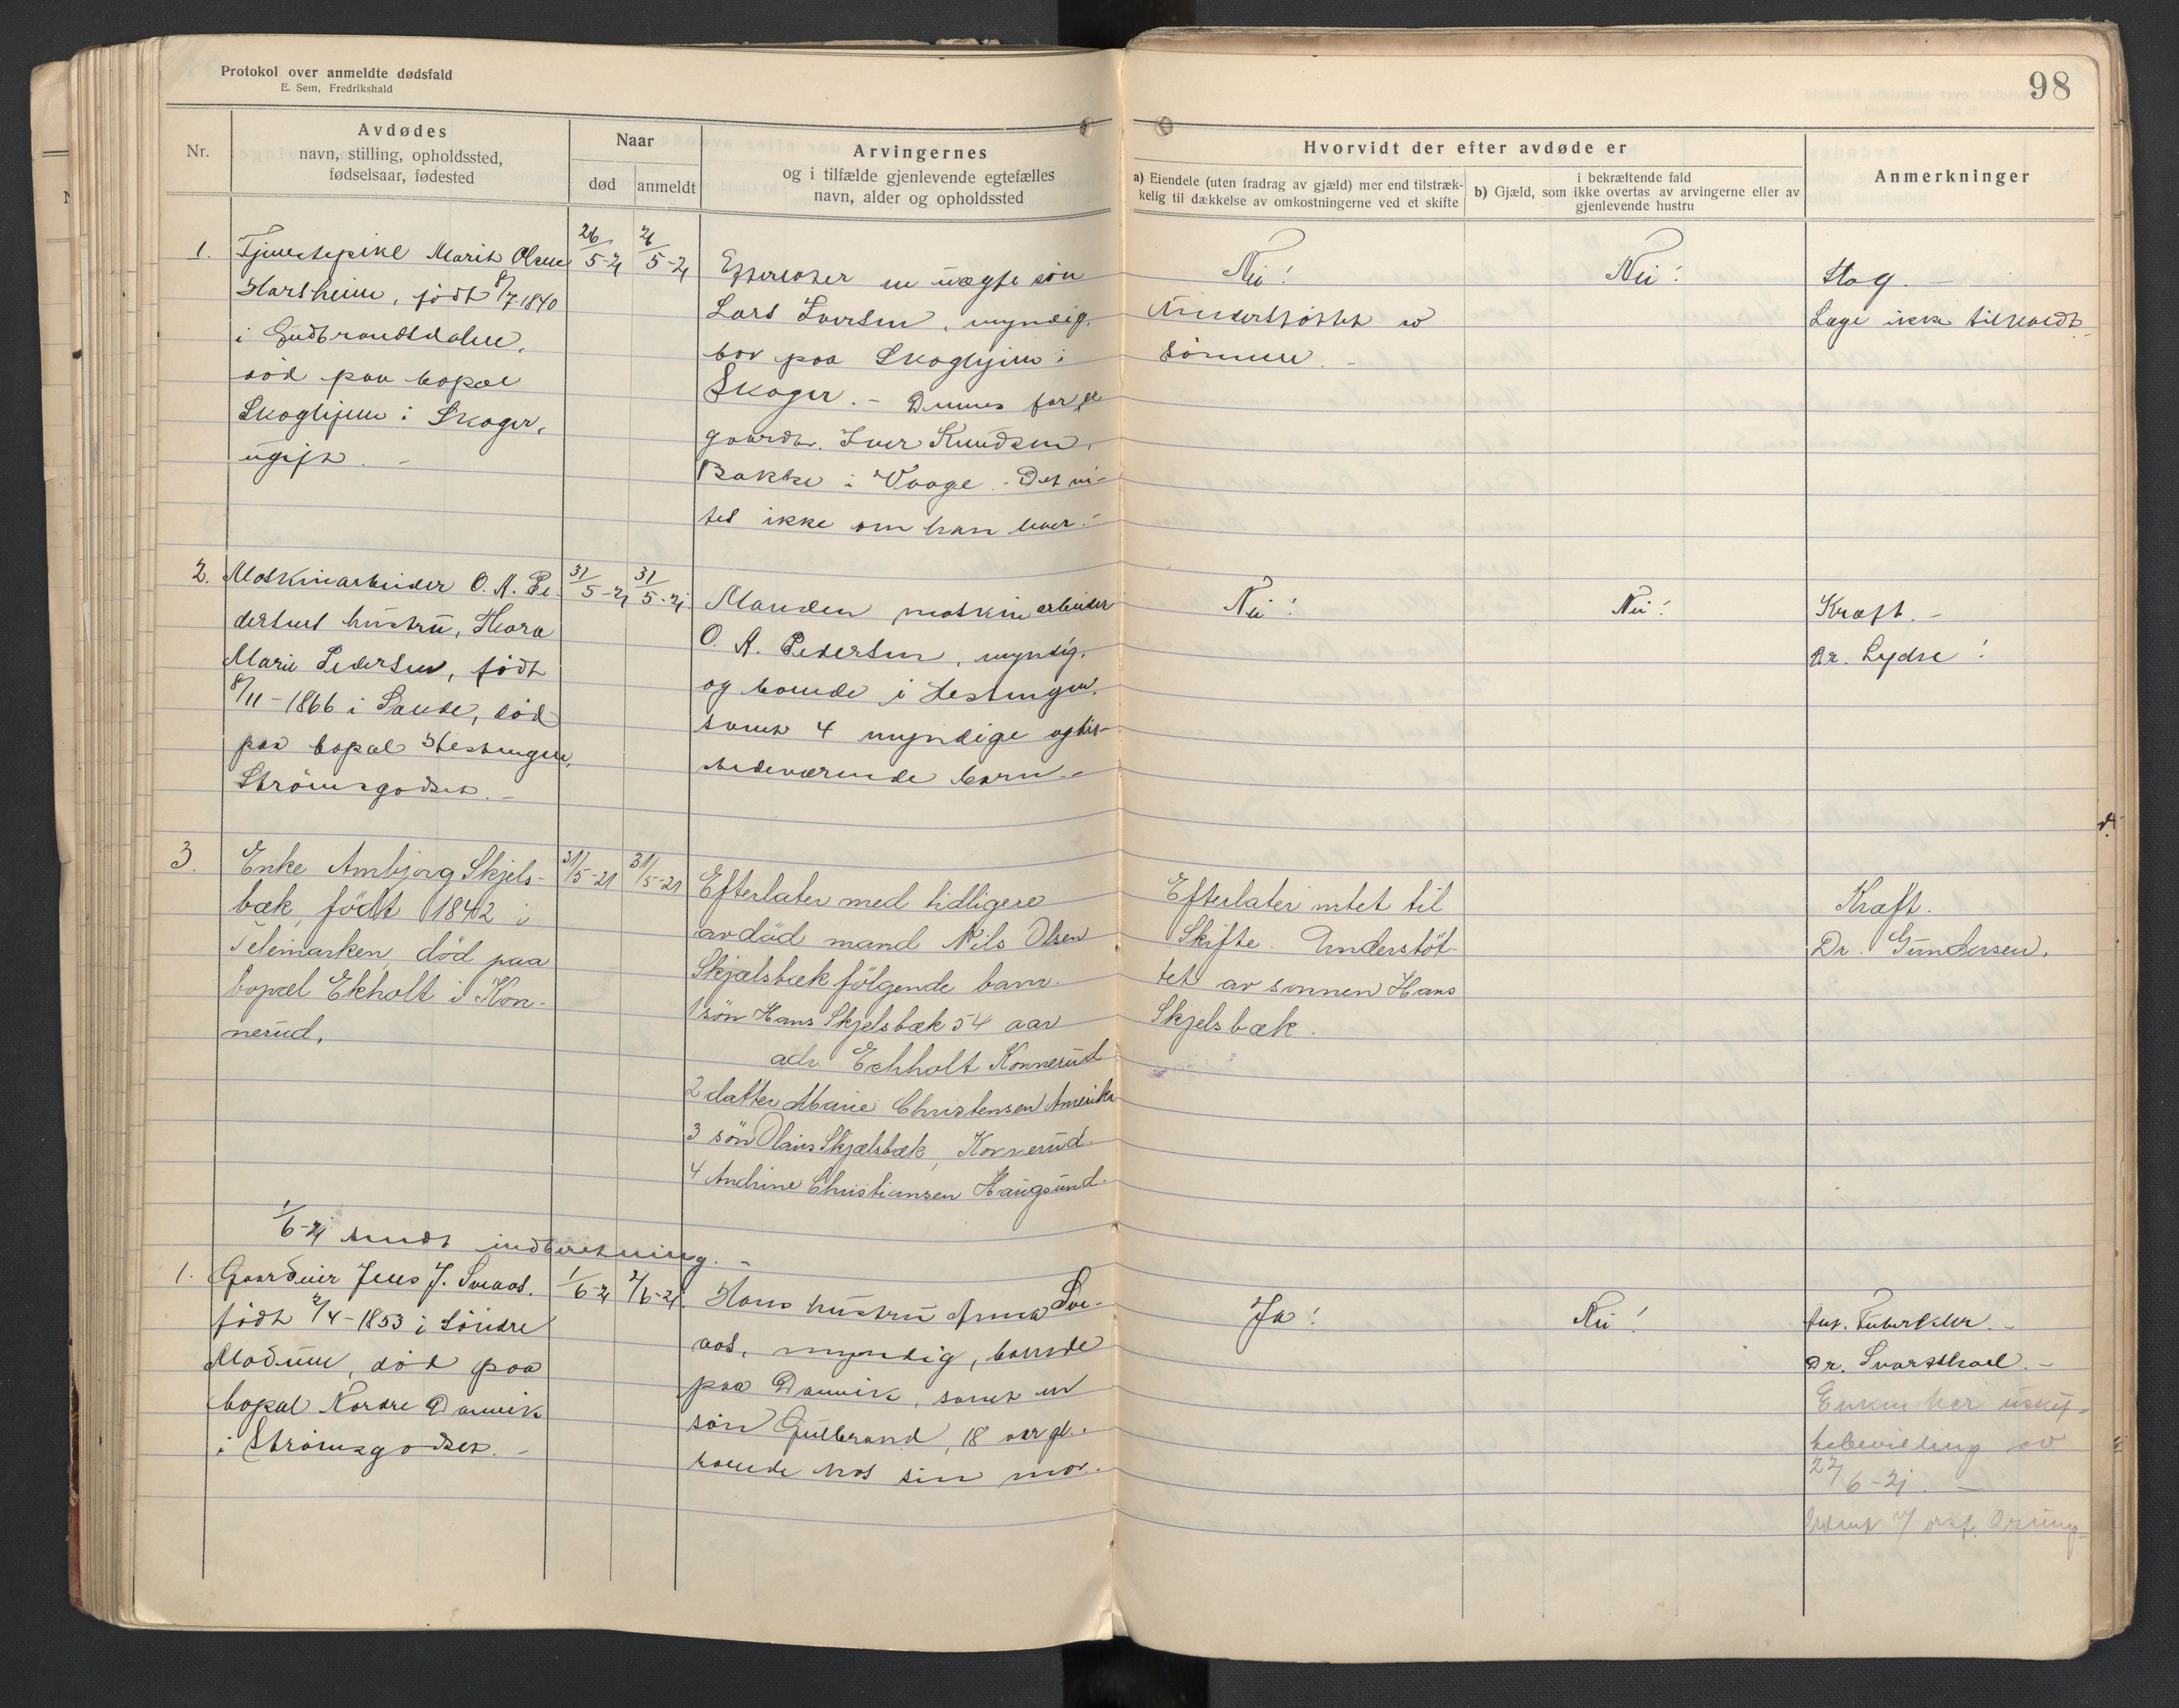 Protokol over anmeldte dødsfald
E. Sem, Fredrikshald
98
Nr.
Avdødes
navn, stilling, opholdssted,
fødselsaar, fødested
Naar
død
anmeldt
Arvingernes
og i tilfælde gjenlevende egtefælles
navn, alder og opholdssted
Hvorvidt der efter avdøde er
a) Eiendele (uten fradrag av gjæld) mer end tilstræk-
kelig til dækkelse av omkostningerne ved et skifte
i bekræftende fald
b) Gjæld, som ikke overtas av arvingerne eller av
gjenlevende hustru
Anmerkninger
1.
Tjenestepike Marit Olsen
Harsheim, født 8/7 1840
i Gudbrandsdalen,
död paa bopæl
Skoglijen i Skoger,
ugift. -
26/5-21
26/5-21
Efterlater en uægte sön
Lars Iversen, myndig,
bor paa Skoglijen i
Skoger. - Dennes far er
gaardbr. Iver Knudsen,
Bakke i Vaage. - Det vi-
tes ikke om han lever. -
Nei!
Understöttet av
sönnen. -
Nei!
Slag. -
Læge ikke tilkaldt. -
2.
Maskinarbeider O. A. Pe-
dersens hustru, Thora
Marie Pedersen, født
8/11-1866 i Sande, död
paa bopæl Hestengen,
Strömsgodset. -
31/5-21
31/5-21
Manden maskinarbeider
O. A. Pedersen, myndig,
og boende i Hestengen,
samt 4 myndige og tils-
tedeværende barn. -
Nei!
Nei!
Kræft. -
Dr. Lydse!
3.
Enke Ambjørg Skjels-
bæk, født 1842 i
Telemarken, død paa
bopæl Ekholt i Kon-
nerud,
31/5-21
31/5-21
Efterlater med tidligere
avdöd mand Nils Olsen
Skjælsbæk fölgende barn.
1 sön Hans Skjelsbæk 54 aar
adr. Echholt Konnerud
2 datter Marie Christensen Amerika
3 sön Olaus Skjælsbæk, Konnerud.
4 Andrine Christiansen Haugsund.
Efterlater intet til
Skifte. Understöt-
tet av sönnen Hans
Skjelsbæk.
Kræft.
Dr. Gundersen.
1/6-21 sendt indberetning. -
1.
Gaardeier Jens J. Sveaas.
født 2/4-1853 i Söndre
Modum, död paa
bopæl Nordre Danvik
i Strömsgodset. -
1/6-21
2/6-21.
Hans hustru Anna Sve-
aas, myndig, boende
paa Danvik, samt en
sön Gulbrand, 18 aar gl.
boende hos sin mor.
Ja!
Nei!
Tuberkler. -
Dr. Svartskael. -
Enken har uskif-
tebevilling av
22/6-21. -